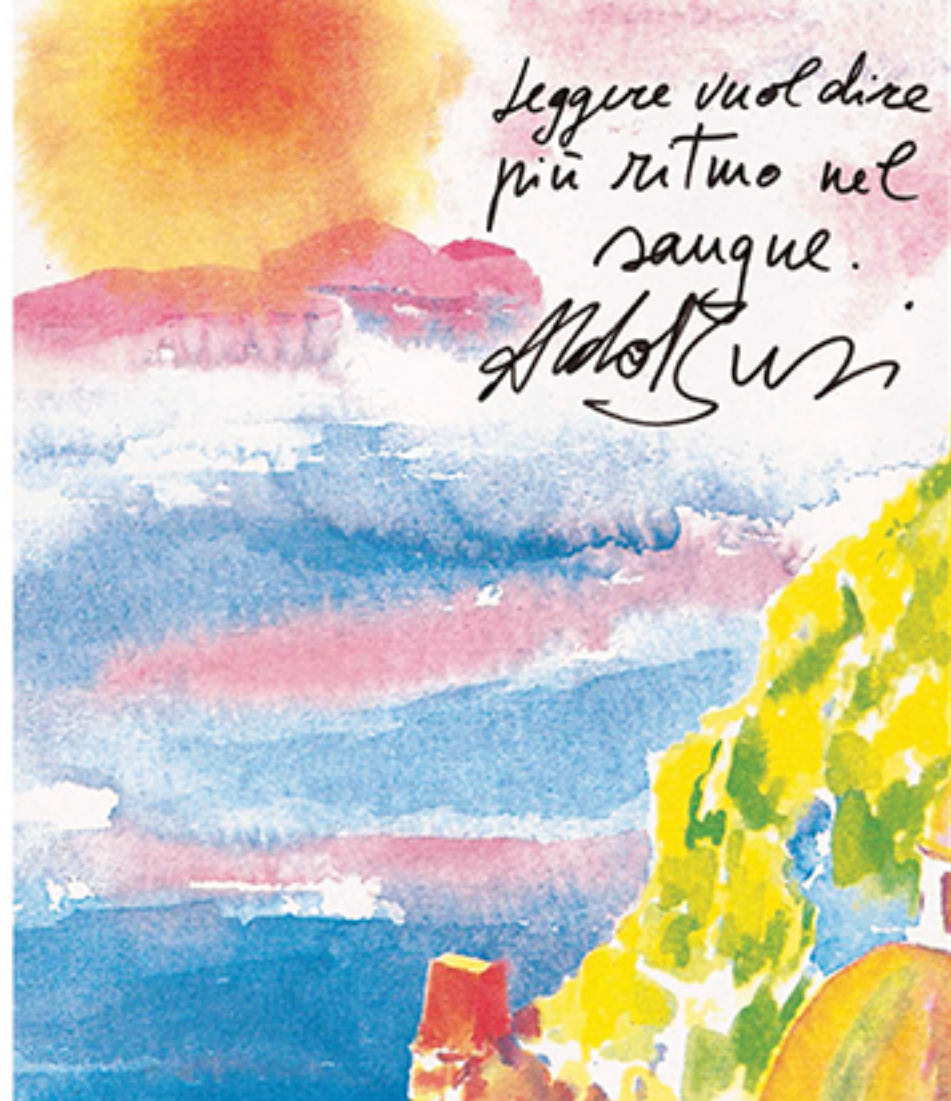 Leggere vuol dire
più ritmo nel
sangue.
Aldo Busi